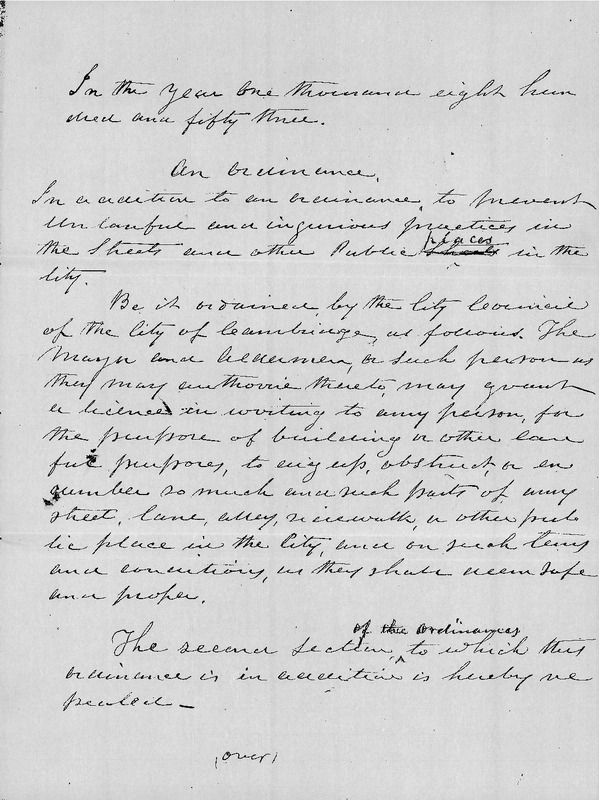 In the year one thousand eight hun
dred and fifty three.
An ordinance.
In addition to an ordinance, to prevent
unlawful and ingurious practices in
places
the Streets and other Public Streets in the
City.
Be it ordained, by the City Council
of the City of Cambridge, as follows. The
Mayor and Aldermen, or such person as
they may authorise thereto, may grant
a licence in writing to any person, for
the purpose of building or other law
ful purposes, to dig up, obstruct, or en
cumber so much and such parts of any
street, lane, alley, sidewalk, or other pub
lic place in the City, and on such terms
and conditions, as they shall deem safe
and proper.
of the ordinances
The second section, to which this
ordinance is in addition is hereby re
pealed —
(over)